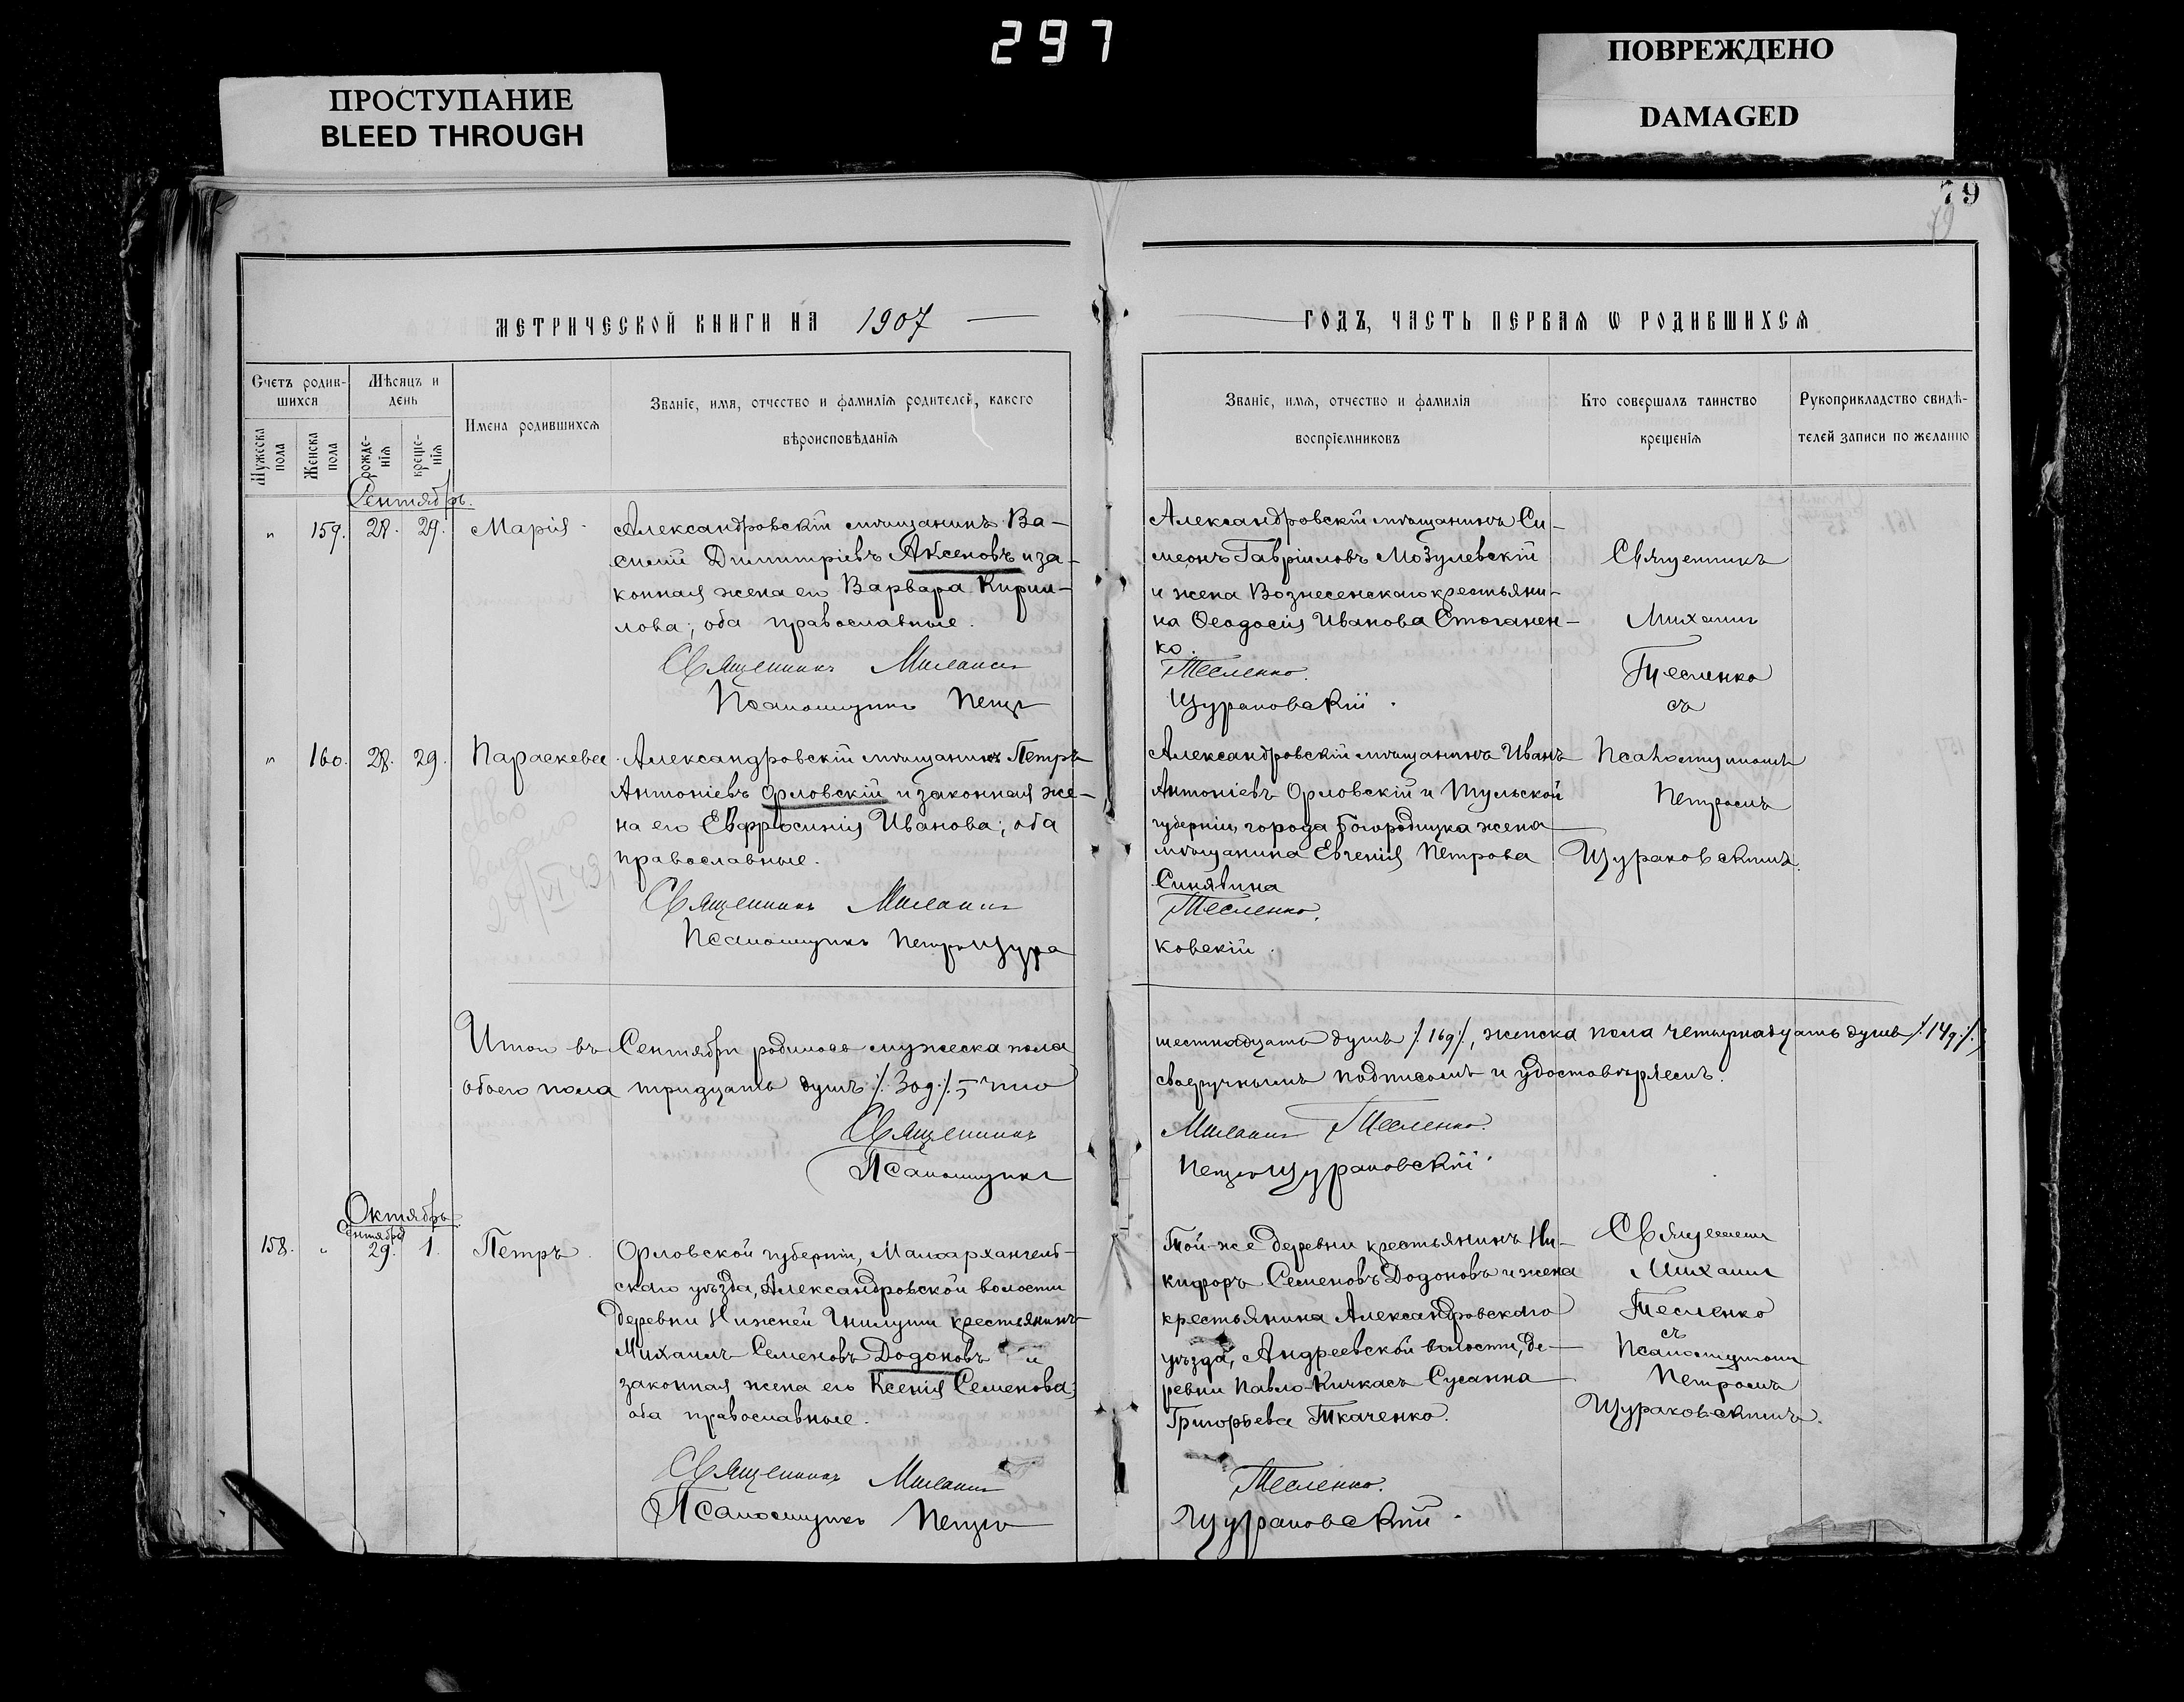 297
ПРОСТУПАНИЕ
BLEED THROUGH
ПОВРЕЖДЕНО
DAMAGED
79
МЕТРИЧЕСКОЙ КНИГИ НА 1907
Счетъ родив-
шихся
Мѣсяцъ и
день
Имена родившихся
Званіе, имя, отчество и фамилія родителей, какого
вѣроисповѣданія
Мужеска
пола
Женска
пола
рожде-
нія
креще-
нія
Сентябрь.
" 159. 28. 29. Марія
Александровскій мѣщанинъ Ва-
силій Димитріевъ Аксеновъ и за-
конная жена его Варвара Кирил-
лова; оба православные.
Священникъ Михаилъ
Псаломщикъ Петръ
" 160. 28. 29. Параскева
Александровскій мѣщанинъ Петръ
Антоніевъ Орловскій и законная же-
на его Евфросинія Иванова; оба
православные.
Священникъ Михаилъ
Псаломщикъ Петръ Щура
Итого въ Сентябрѣ родилось мужеска пола
обоего пола тридцать душъ /.30д/. что
Священникъ
Псаломщикъ
Октябрь
Сентября
158. " 29. 1. Петръ
Орловской губерніи, Малоархангель-
скаго уѣзда, Александровской волости
деревни Нижней Гнилуши крестьянинъ
Михаилъ Семеновъ Додоновъ и
законная жена его Ксенія Семенова;
оба православные.
Священникъ Михаилъ
Псаломщикъ Петръ
ГОДЪ, ЧАСТЬ ПЕРВАЯ Ѡ РОДИВШИХСЯ
Званіе, имя, отчество и фамилія
воспріемниковъ
Кто совершалъ таинство
крещенія
Рукоприкладство свидѣ-
телей записи по желанію
Александровскій мѣщанинъ Си-
меонъ Гавріиловъ Мозулевскій
и жена Вознесенскаго крестьяни-
на Ѳеодосія Иванова Стоганен-
ко.
Тесленко.
Щураковскій.
Священникъ
Михаилъ
Тесленко
съ
Александровскій мѣщанинъ Иванъ
Антоніевъ Орловскій и Тульской
губерніи, города Богородицка жена
мѣщанина Евгенія Петрова
Синявина
Тесленко.
ковскій.
Псаломщикомъ
Петромъ
Щураковскимъ.
шестнадцать душъ /.16д/., женска пола четырнадцать душъ /.14д./.
своеручнымъ подписомъ и удостовѣряемъ.
Михаилъ Тесленко.
Петръ Щураковскій.
Той-же деревни крестьянинъ Ни-
кифоръ Семеновъ Додоновъ и жена
крестьянина Александровскаго
уѣзда, Андреевской волости, де-
ревни Павло-Кичкасъ Сусанна
Григорьева Ткаченко.
Тесленко.
Щураковскій.
Священникъ
Михаилъ
Тесленко
съ
Псаломщикомъ
Петромъ
Щураковскимъ.